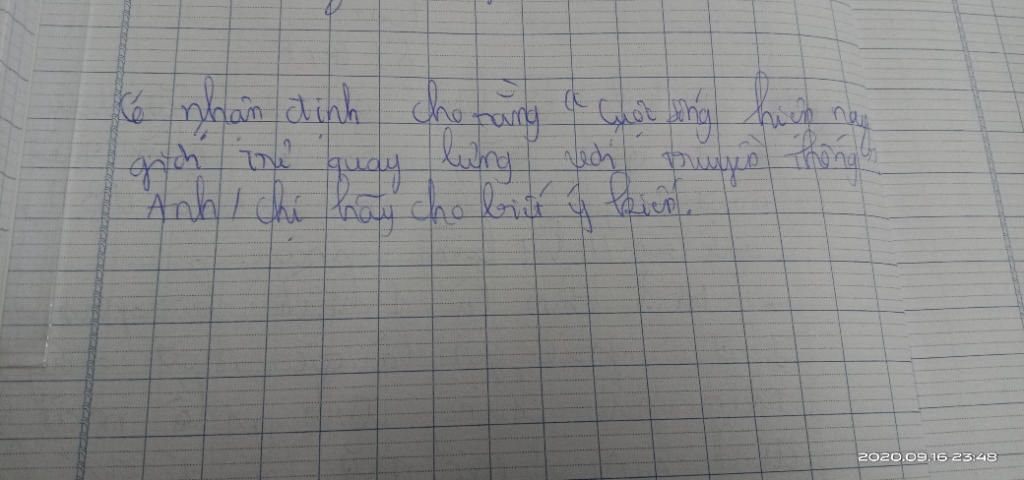 Có nhận định cho rằng "Cuộc sống hiện nay
giới trẻ quay lưng với truyền thống"
Anh / chị hãy cho biết ý kiến.
2020.09.16 23:48